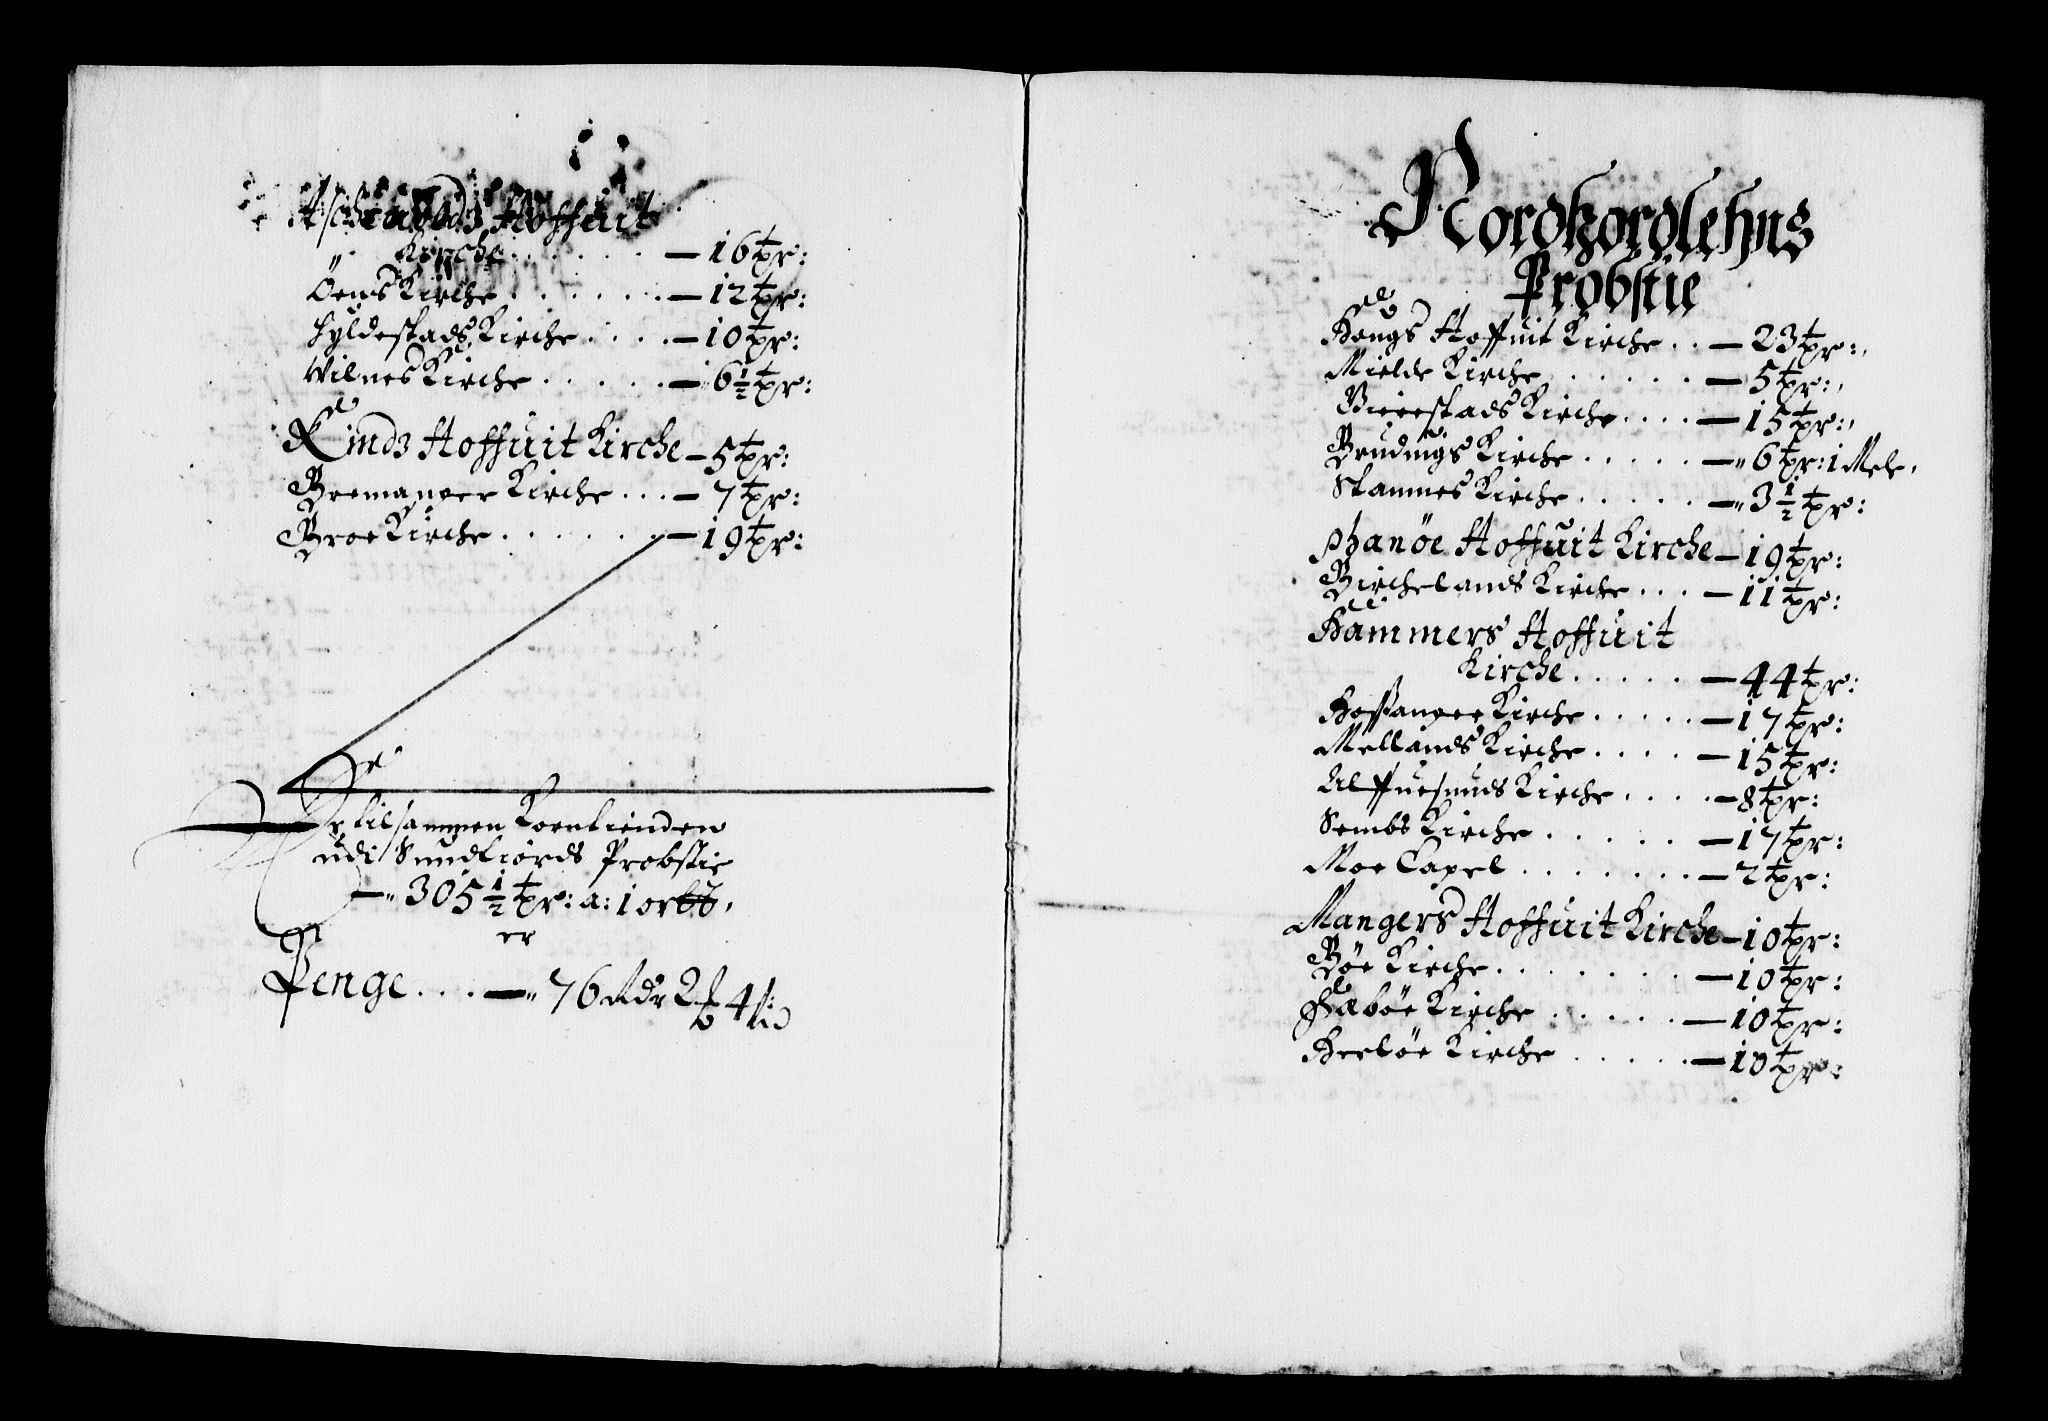 Aschevolds Hoffuit
Kirche . . . . . — 16 tpr:
Öens Kirche . . . . . . — 12 tpr:
Hyldestads Kirche . . . . — 10 tpr:
Wilnes Kirche . . . . . — 6½ tpr:
Kinds Hoffuit Kirche — 5 tpr:
Bremanger Kirche . . . — 7 tpr:
Broe Kirche . . . . . . — 19 tpr:
Er tilsammen Korntienden
udi Sundfiords Probstie
— 305½ tpr: a: 1 ort
er
Penge . . . — 76 Rdr 2 ß
Nordhordlehns
Probstie
Hougs Hoffuit Kirche . . — 23 tpr:
Mielde Kirche . . . . . — 5 tpr:
Gierestads Kirche . . . . — 15 tpr:
Brudings Kirche . . . . . — 6 tpr: 1 Mele
Stamnes Kirche . . . . . — 3½ tpr:
Phanöe Hoffuit Kirche — 19 tpr:
Birchelands Kirche . . . — 11 tpr:
Hammers Hoffuit
Kirche . . . . . — 44 tpr:
Hossanger Kirche . . . . . — 17 tpr:
Mellands Kirche . . . . — 15 tpr:
Kirche . . . . — 8 tpr:
Sembs Kirche . . . . . — 17 tpr:
Moe Capel . . . . . . . — 2 tpr:
Mangers Hoffuit Kirche — 10 tpr:
Böe Kirche . . . . . . . — 10 tpr:
Sæböe Kirche . . . . . — 10 tpr:
Herlöe Kirche . . . . . — 10 tpr: